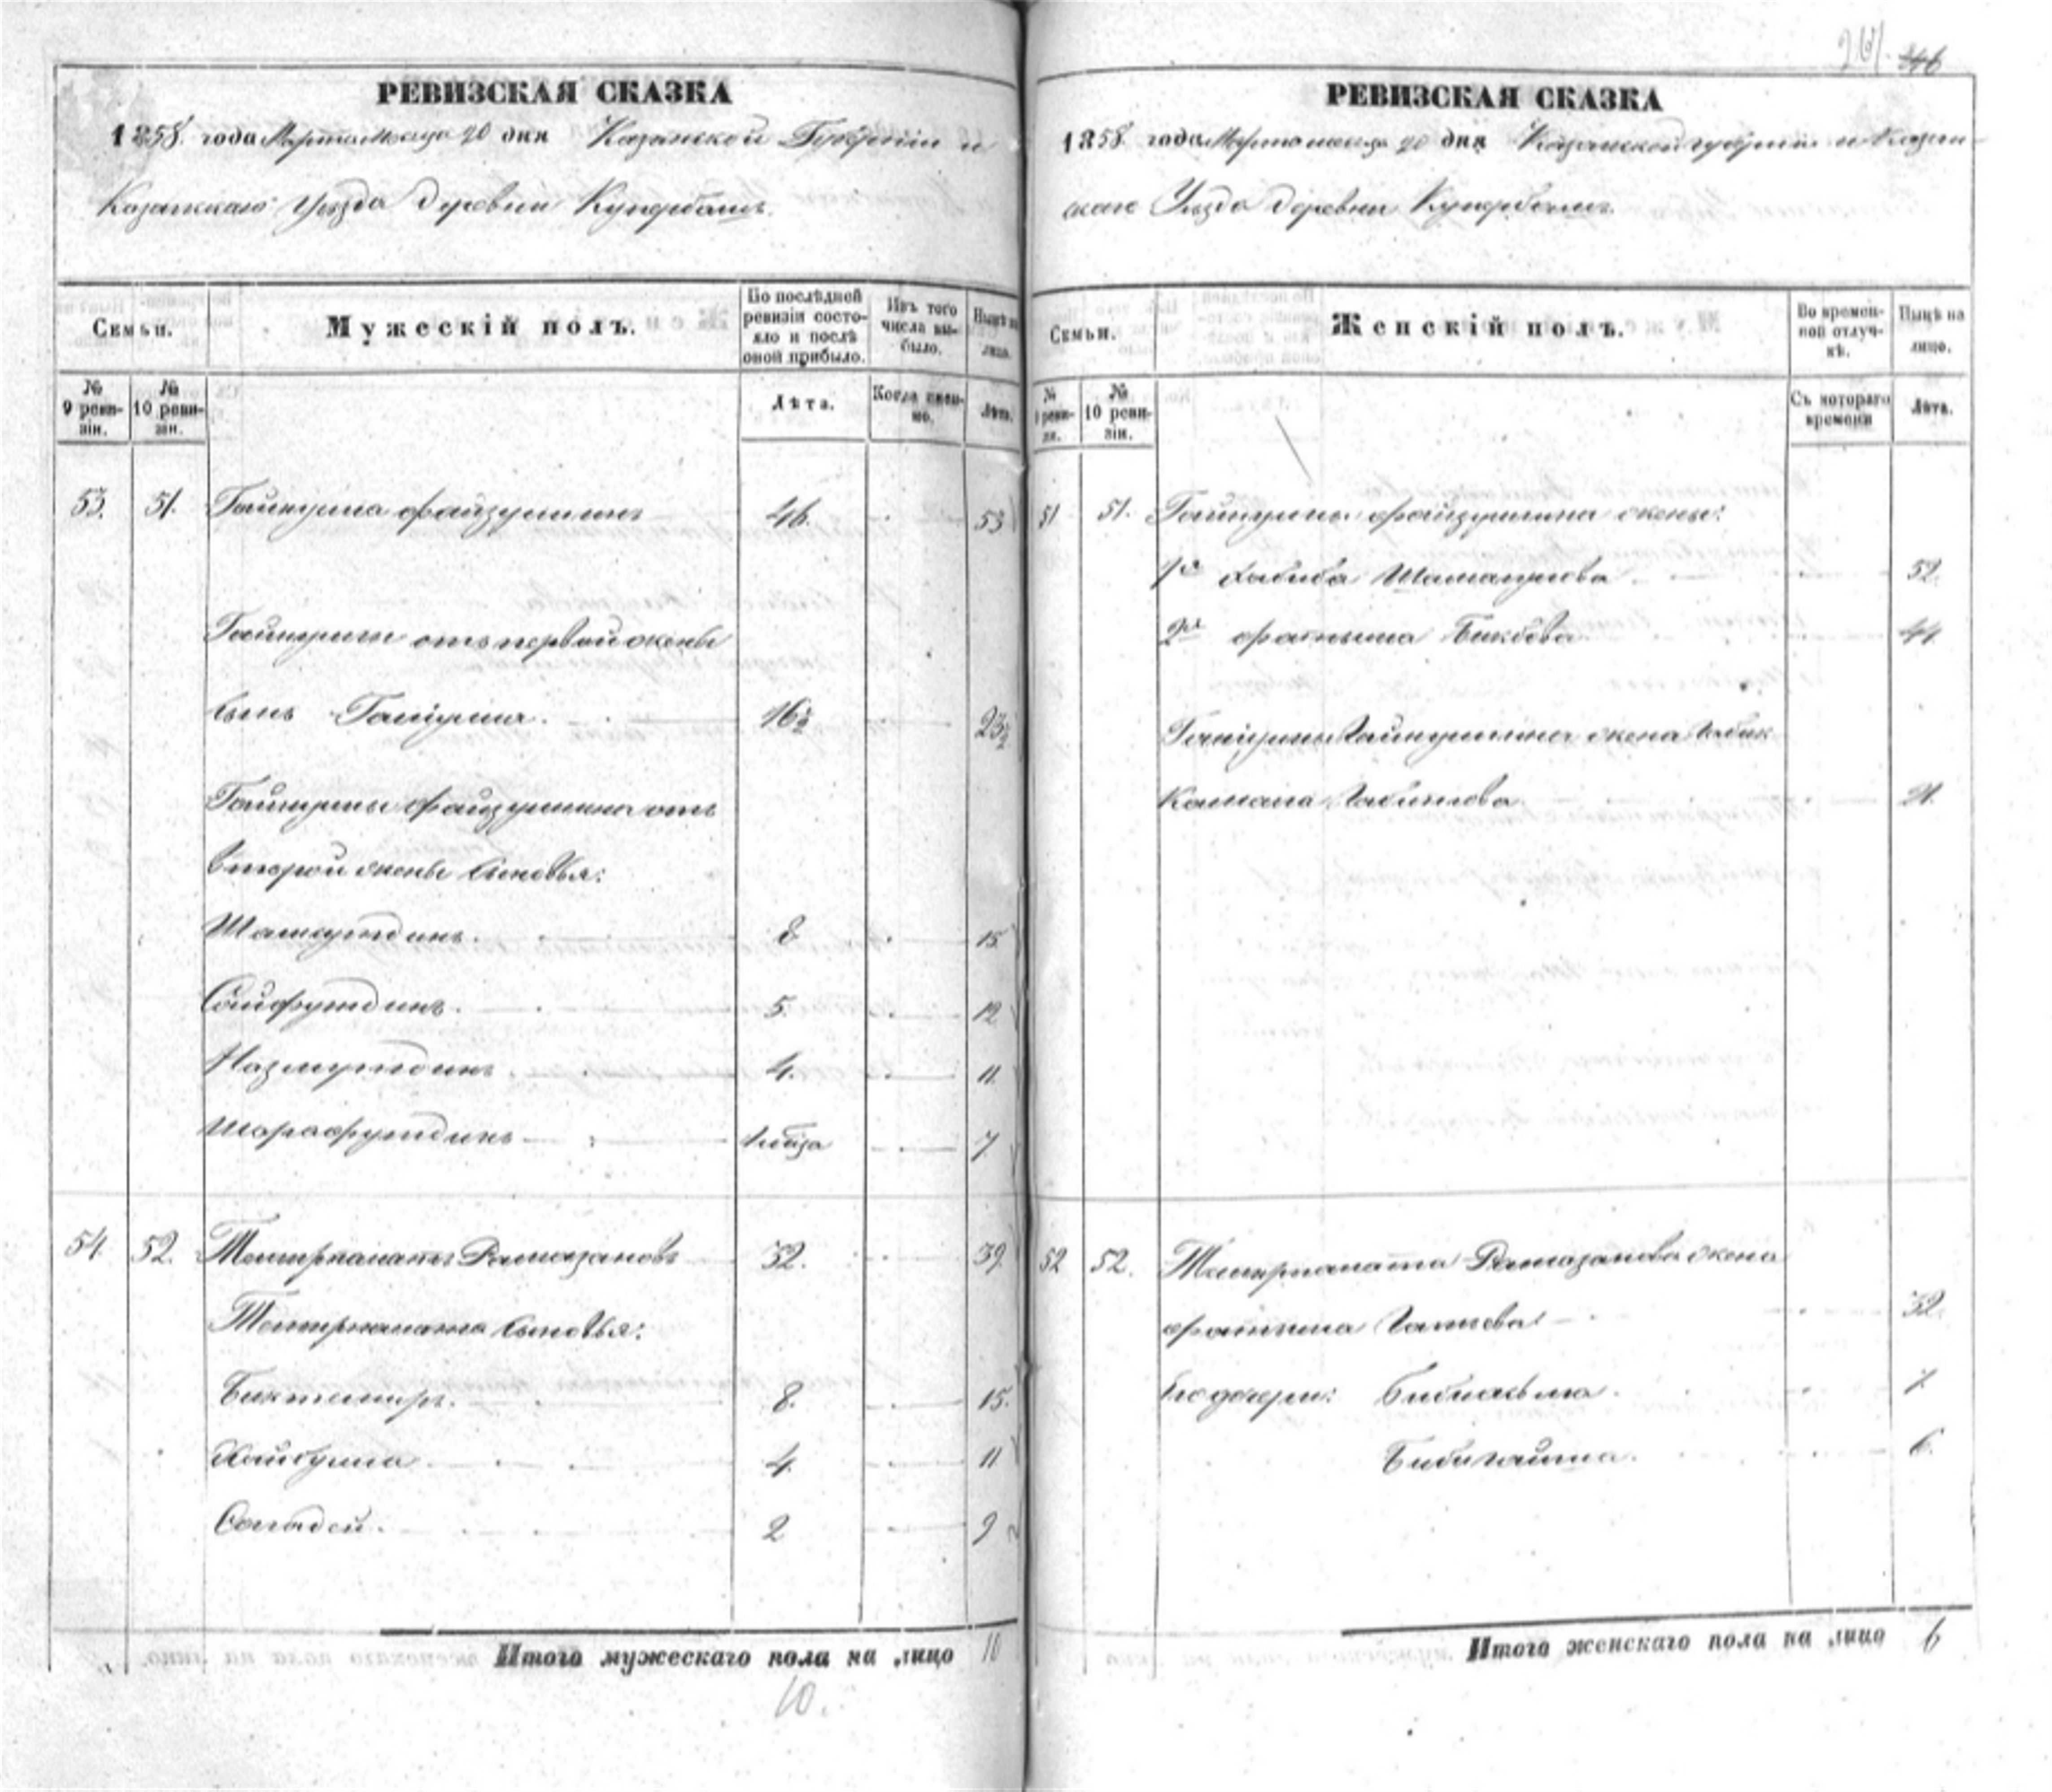 РЕВИЗСКАЯ СКАЗКА
1858 года Марта месяца 20 дня Казанской Губернии и
Казанскаго Уезда деревни Купербашъ.
Семьи.
Мужескій полъ.
По послѣдней ревизіи состояло и послѣ оной прибыло.
Изъ того числа выбыло.
Нынѣ на лицо.
№ 9 ревизіи.
№ 10 ревизіи.
Лѣта.
Когда именно.
Лѣта.
53. 51. Гайнулла Файзуллинъ 46. 53
Гайнуллы отъ первой жены
сынъ Ганіулла. 16½ 23½
Гайнуллы Файзуллина отъ
второй жены сыновья:
Шамсутдинъ. 8 15
Сайфутдинъ. 5. 12
Назмутдинъ. 4. 11.
Шарафутдинъ 7
54. 52. Темирканатъ Рамазановъ 32. 39.
Темирканата сыновья:
Биктемиръ. 8. 15.
Хайбулла 4. 11
Сагадей. 2 9
Итого мужескаго пола на лицо 10
10.
261. 46
РЕВИЗСКАЯ СКАЗКА
1858 года Марта месяца 20 дня Казанской губернии и Казан-
скаго Уезда деревни Купербашъ.
Семьи.
Женскій полъ.
Во временной отлучкѣ.
Нынѣ на лицо.
№ 9 ревизіи.
№ 10 ревизіи.
Съ котораго времени
Лѣта.
51 51. Гайнуллы Файзуллина жены:
1я Хабиба 52.
2я Бикбова 44
Ганіуллы Гайнуллина жена
Камала Габитова 21.
52 52. Темирканата Рамазанова жена
32.
Его дочери: 7.
6.
Итого женскаго пола на лицо 6